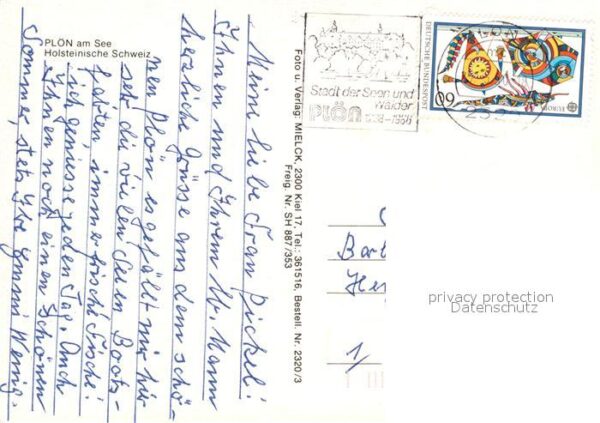 PLÖN am See
Holsteinische Schweiz
Meine liebe Frau Pickel!
Ihnen und Ihrem lb. Mann
herzliche Grüsse aus dem schö-
nen Plön, es gefällt mir hier
sehr die vielen Seen Boots-
fahrten, immer frische Fische!
genieße jeden Tag. Auch
Ihnen noch einen schönen
Sommer, stets Ihre Emmi Wenig.
Foto u. Verlag: MIELCK, 2300 Kiel 17, Tel.: 361516, Bestell. Nr. 2320/3
Freig. Nr. SH 887/353
Stadt der Seen und
Wälder
PLÖN
DEUTSCHE BUNDESPOST
60
EUROPA
privacy protection
Datenschutz
1/